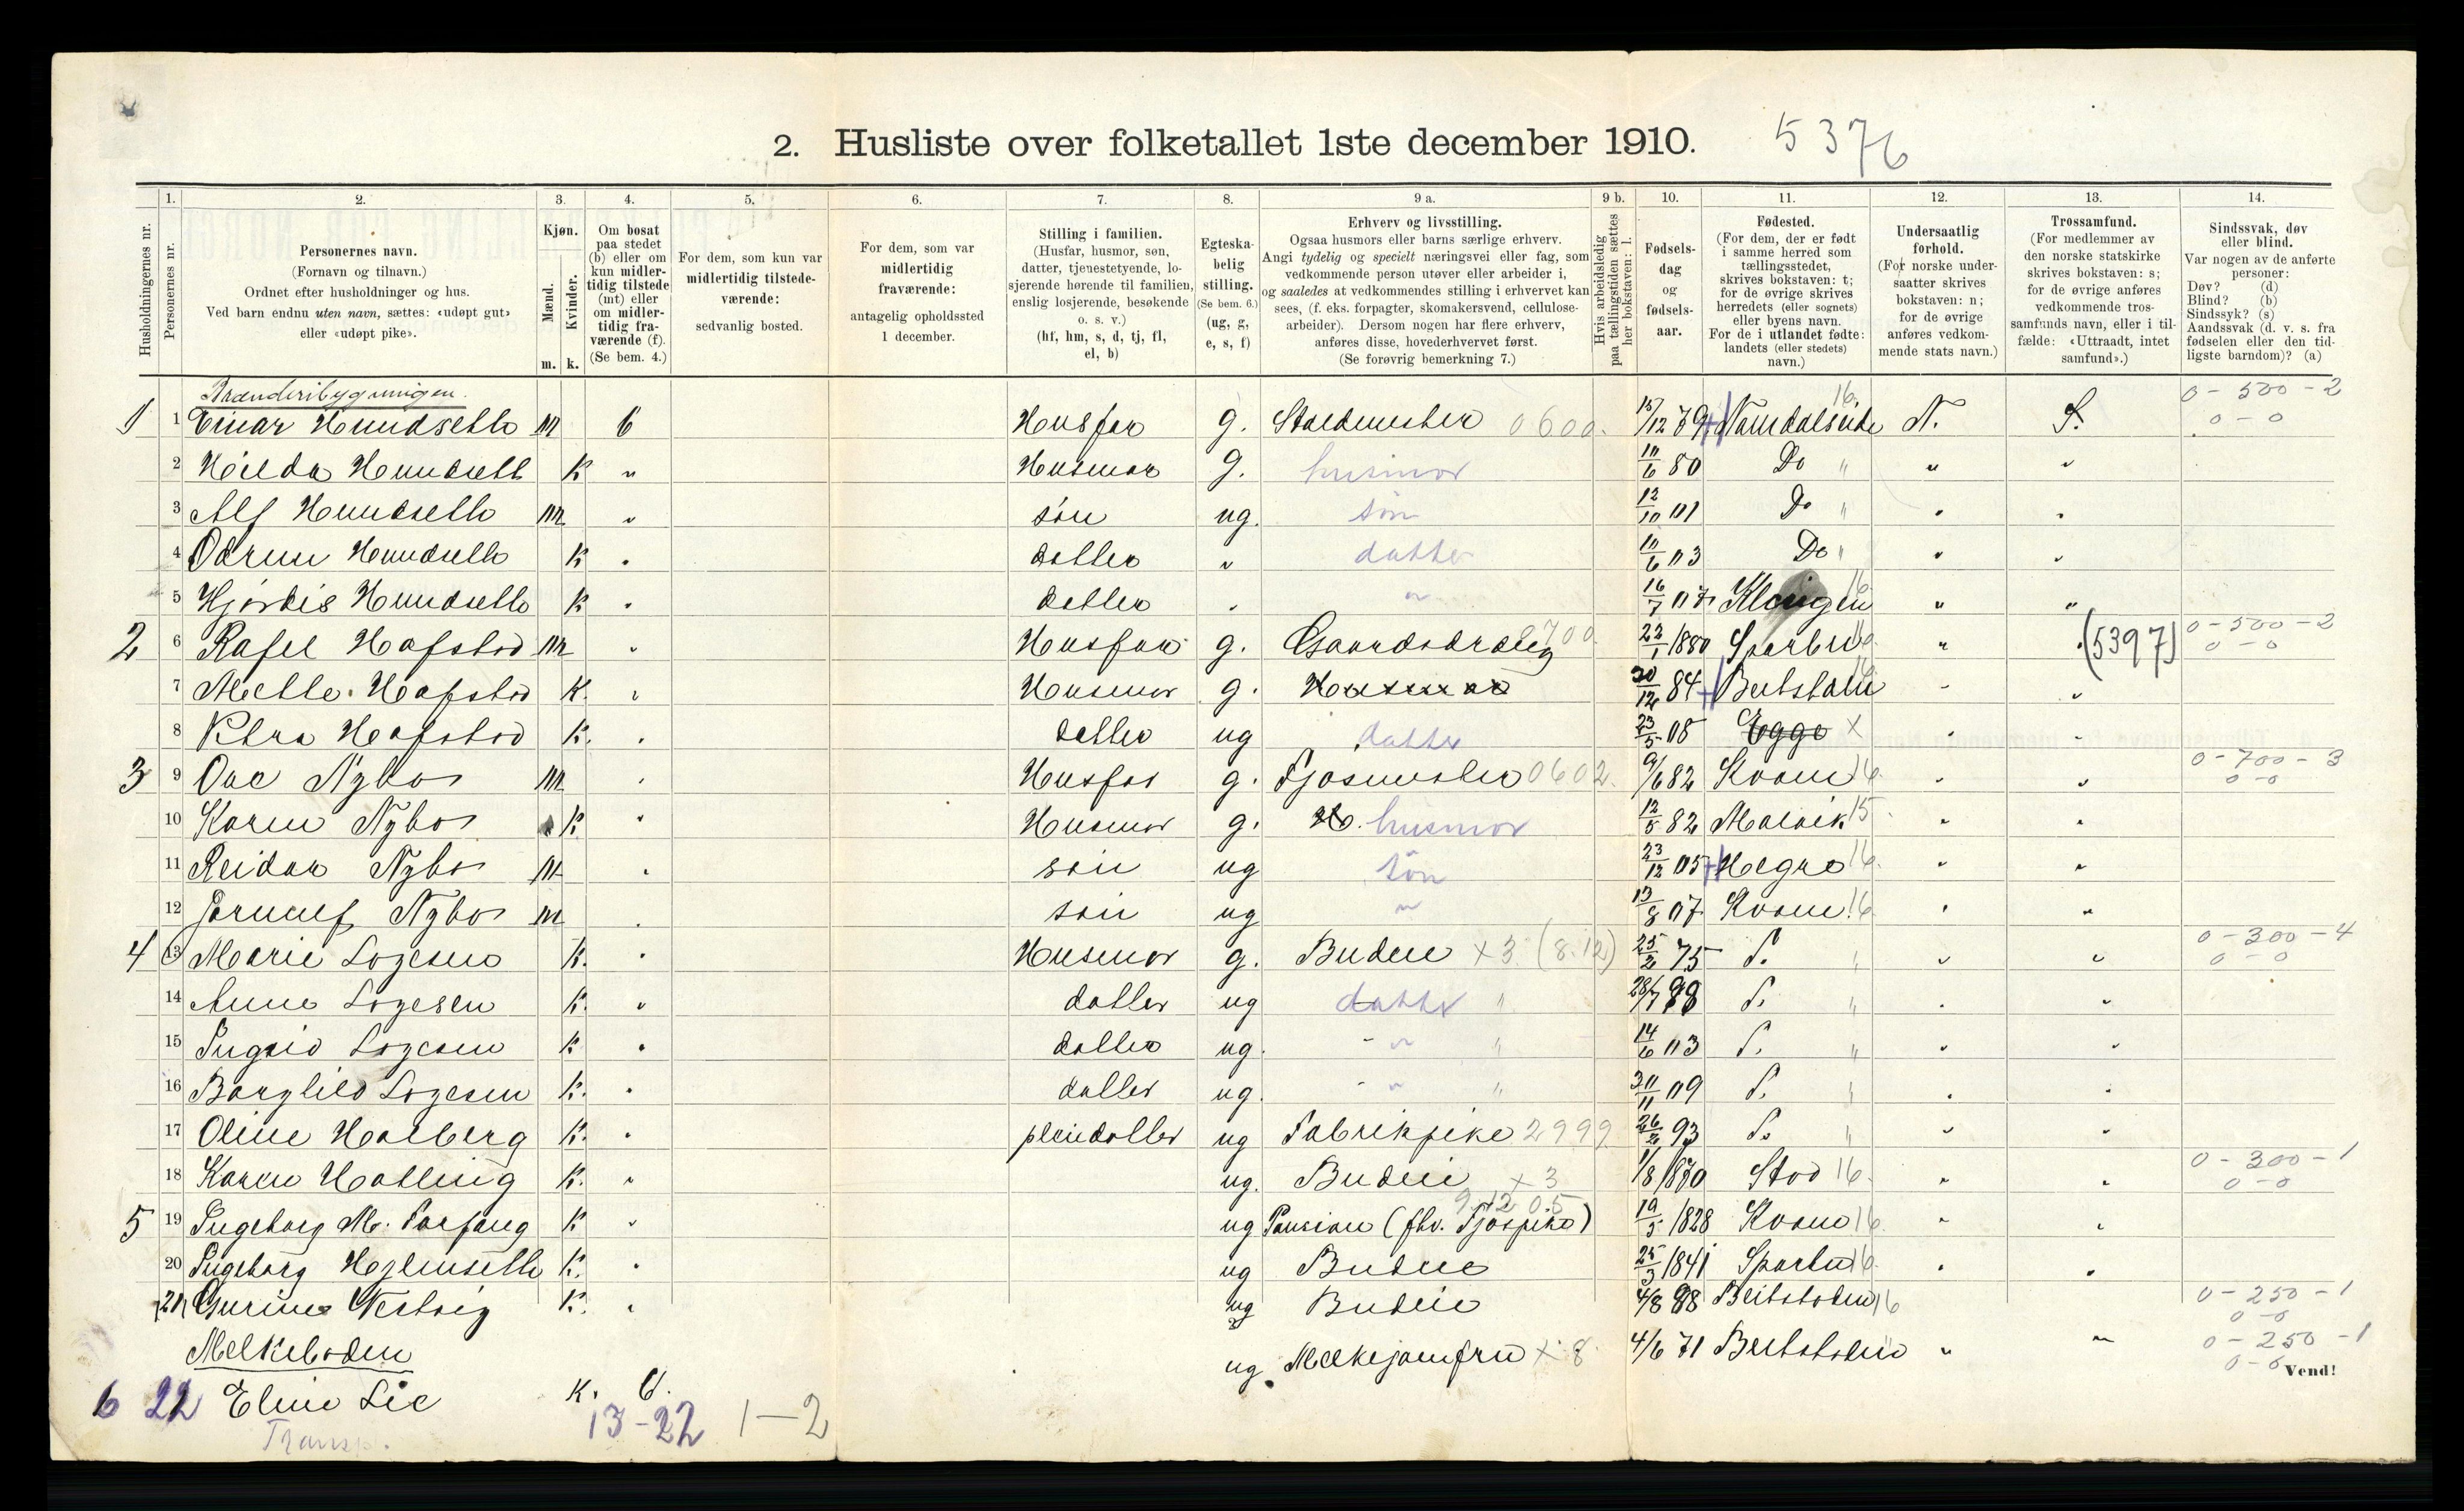 2. Husliste over folketallet 1ste december 1910. 5376
Husholdningernes nr.
1. Personernes nr.
2. Personernes navn.
(Fornavn og tilnavn.)
Ordnet efter husholdninger og hus.
Ved barn endnu uten navn, sættes: «udøpt gut»
eller «udøpt pike».
3. Kjøn.
Mænd. Kvinder.
m. k.
4. Om bosat
paa stedet
(b) eller om
kun midler-
tidig tilstede
(mt) eller
om midler-
tidig fra-
værende (f).
(Se bem. 4.)
5. For dem, som kun var
midlertidig tilstede-
værende:
sedvanlig bosted.
6. For dem, som var
midlertidig
fraværende:
antagelig opholdssted
1 december.
7. Stilling i familien.
(Husfar, husmor, søn,
datter, tjenestetyende, lo-
sjerende hørende til familien,
enslig losjerende, besøkende
o. s. v.)
(hf, hm, s, d, tj, fl,
el, b)
8. Egteska-
belig
stilling.
(Se bem. 6.)
(ug, g,
e, s, f)
9 a. Erhverv og livsstilling.
Ogsaa husmors eller barns særlige erhverv.
Angi tydelig og specielt næringsvei eller fag, som
vedkommende person utøver eller arbeider i,
og saaledes at vedkommendes stilling i erhvervet kan
sees, (f. eks. forpagter, skomakersvend, cellulose-
arbeider). Dersom nogen har flere erhverv,
anføres disse, hovederhvervet først.
(Se forøvrig bemerkning 7.)
9 b. Hvis arbeidsledig
paa tællingstiden sættes
her bokstaven: l.
10. Fødsels-
dag
og
fødsels-
aar.
11. Fødested.
(For dem, der er født
i samme herred som
tællingsstedet,
skrives bokstaven: t;
for de øvrige skrives
herredets (eller sognets)
eller byens navn.
For de i utlandet fødte:
landets (eller stedets)
navn.)
12. Undersaatlig
forhold.
(For norske under-
saatter skrives
bokstaven: n;
for de øvrige
anføres vedkom-
mende stats navn.)
13. Trossamfund.
(For medlemmer av
den norske statskirke
skrives bokstaven: s;
for de øvrige anføres
vedkommende tros-
samfunds navn, eller i til-
fælde: «Uttraadt, intet
samfund».)
14. Sindssvak, døv
eller blind.
Var nogen av de anførte
personer:
Døv? (d)
Blind? (b)
Sindssyk? (s)
Aandssvak (d. v. s. fra
fødselen eller den tid-
ligste barndom)? (a)
0-500-2
1 1 Einar m b Husfar g. Staldmester 0600. 15/12 79 Namdalseide 16. N. S. 0-0
2 Hilda K " Husmor g. husmor 10/6 80 Do " " "
3 Alf m " søn ug. søn 12/10 01 Do "
4 K datter " datter 10/6 03 Do "
5 Hjørdis K datter " 16/7 07 16 " "
0-500-2
2 6 Rafel Hafstad m Husfar g. 0700. 22/1 1880 Sparbu 16 " (5397) 0-0
7 Mette Hafstad K. Husmor g. Husmor 20/12 84 Beitstaden 16
8 Petra Hafstad K. datter ug datter 23/5 08 Egge x
0-700-3
3 9 Ove Nybo m Husfar g. Fjosmester 0602. 9/6 82 Kvam 16. 0-0
10 Karen Nybo K Husmor g. H. husmor 12/5 82 Malvik 15
11 Reidar Nybo m søn ug søn 23/12 05 Hegra 16.
12 Nybo m søn ug " 13/8 07 Kvam 16.
0-300-4
4 13 Marie K. Husmor g. Budeie x 3 (8.12) 25/2 75 " 0-0
14 Anna K. datter ug datter " "
15 Ingrid K datter ug. " " 14/6 03 "
16 Borghild K. datter ug. " " 30/11 09 "
17 Oline Halberg K. pleiedatter ug Fabrikpike 2999 26/2 93 "
0-300-1
18 Karen Halling K. ug. Budeie x 3 1/8 1870 Stod 16. 0-0
5 19 Ingeborg M. K ug Pension (fhv. Fjøspike) 9-12 05 19/5 1828 Kvam 16
20 Ingeborg K. ug Budeie 25/3 1841 Sparbu 16.
0-250-1
21 K. ug Budeie 4/8 88 Beitstaden 16 0-0
Melkeboden
0-250-1
6 22 Elise Lie K. b. ug. Melkejomfru x 8 4/6 71 Beitstaden " " 0-0
Vend!
Transp.
13-22 1-2